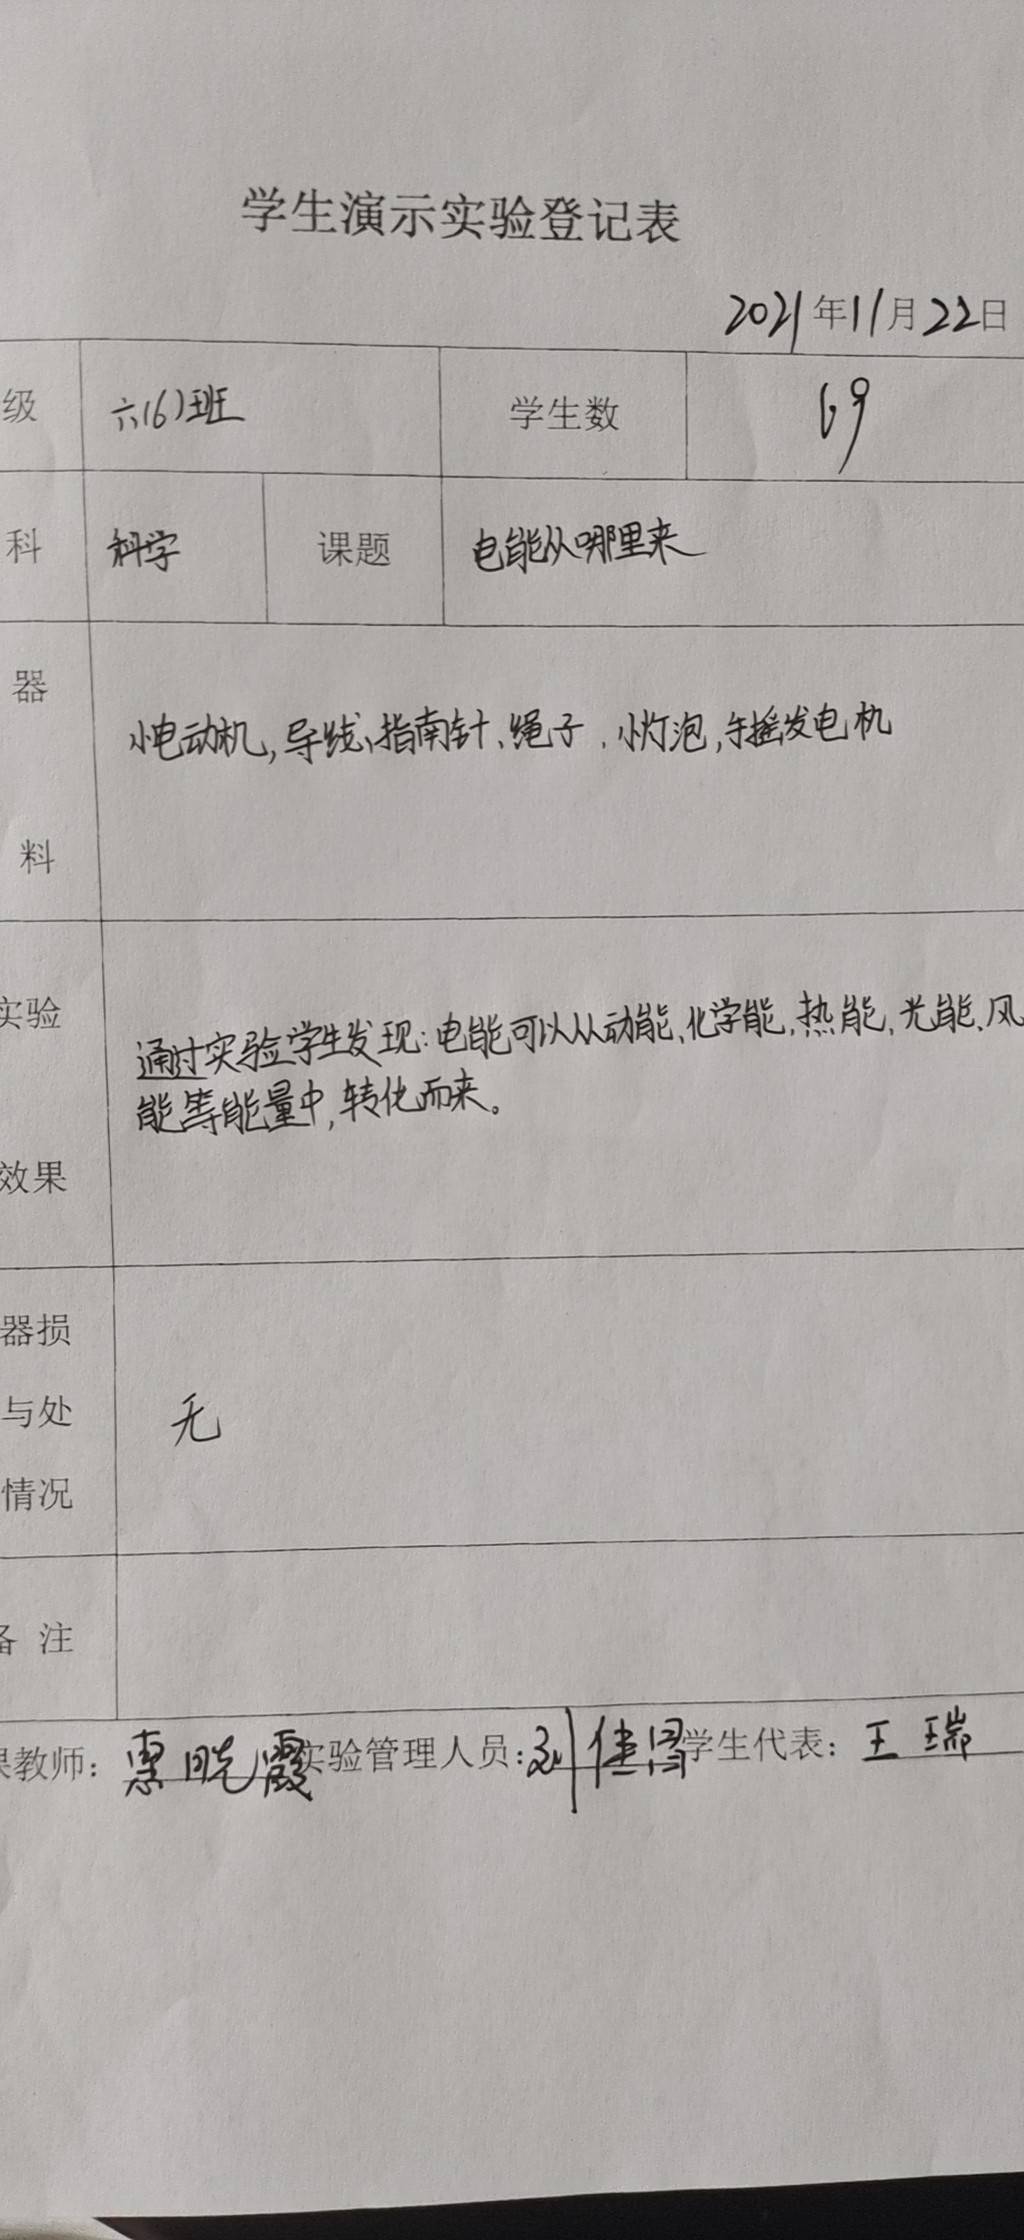 学生演示实验登记表
2021年11月22日
级 六(6)班 学生数 69
科 科学 课题 电能从哪里来
器
小电动机,导线、指南针、绳子,小灯泡,手摇发电机
料
实验
通过实验学生发现:电能可以从动能、化学能,热能,光能、风
能等能量中,转化而来。
效果
器损
与处 无
情况
备 注
课教师: 惠晓霞 实验管理人员: 刘 学生代表: 王瑞